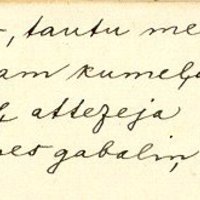 , tautu me
am kumeļ
attezeja
es gabaliņ